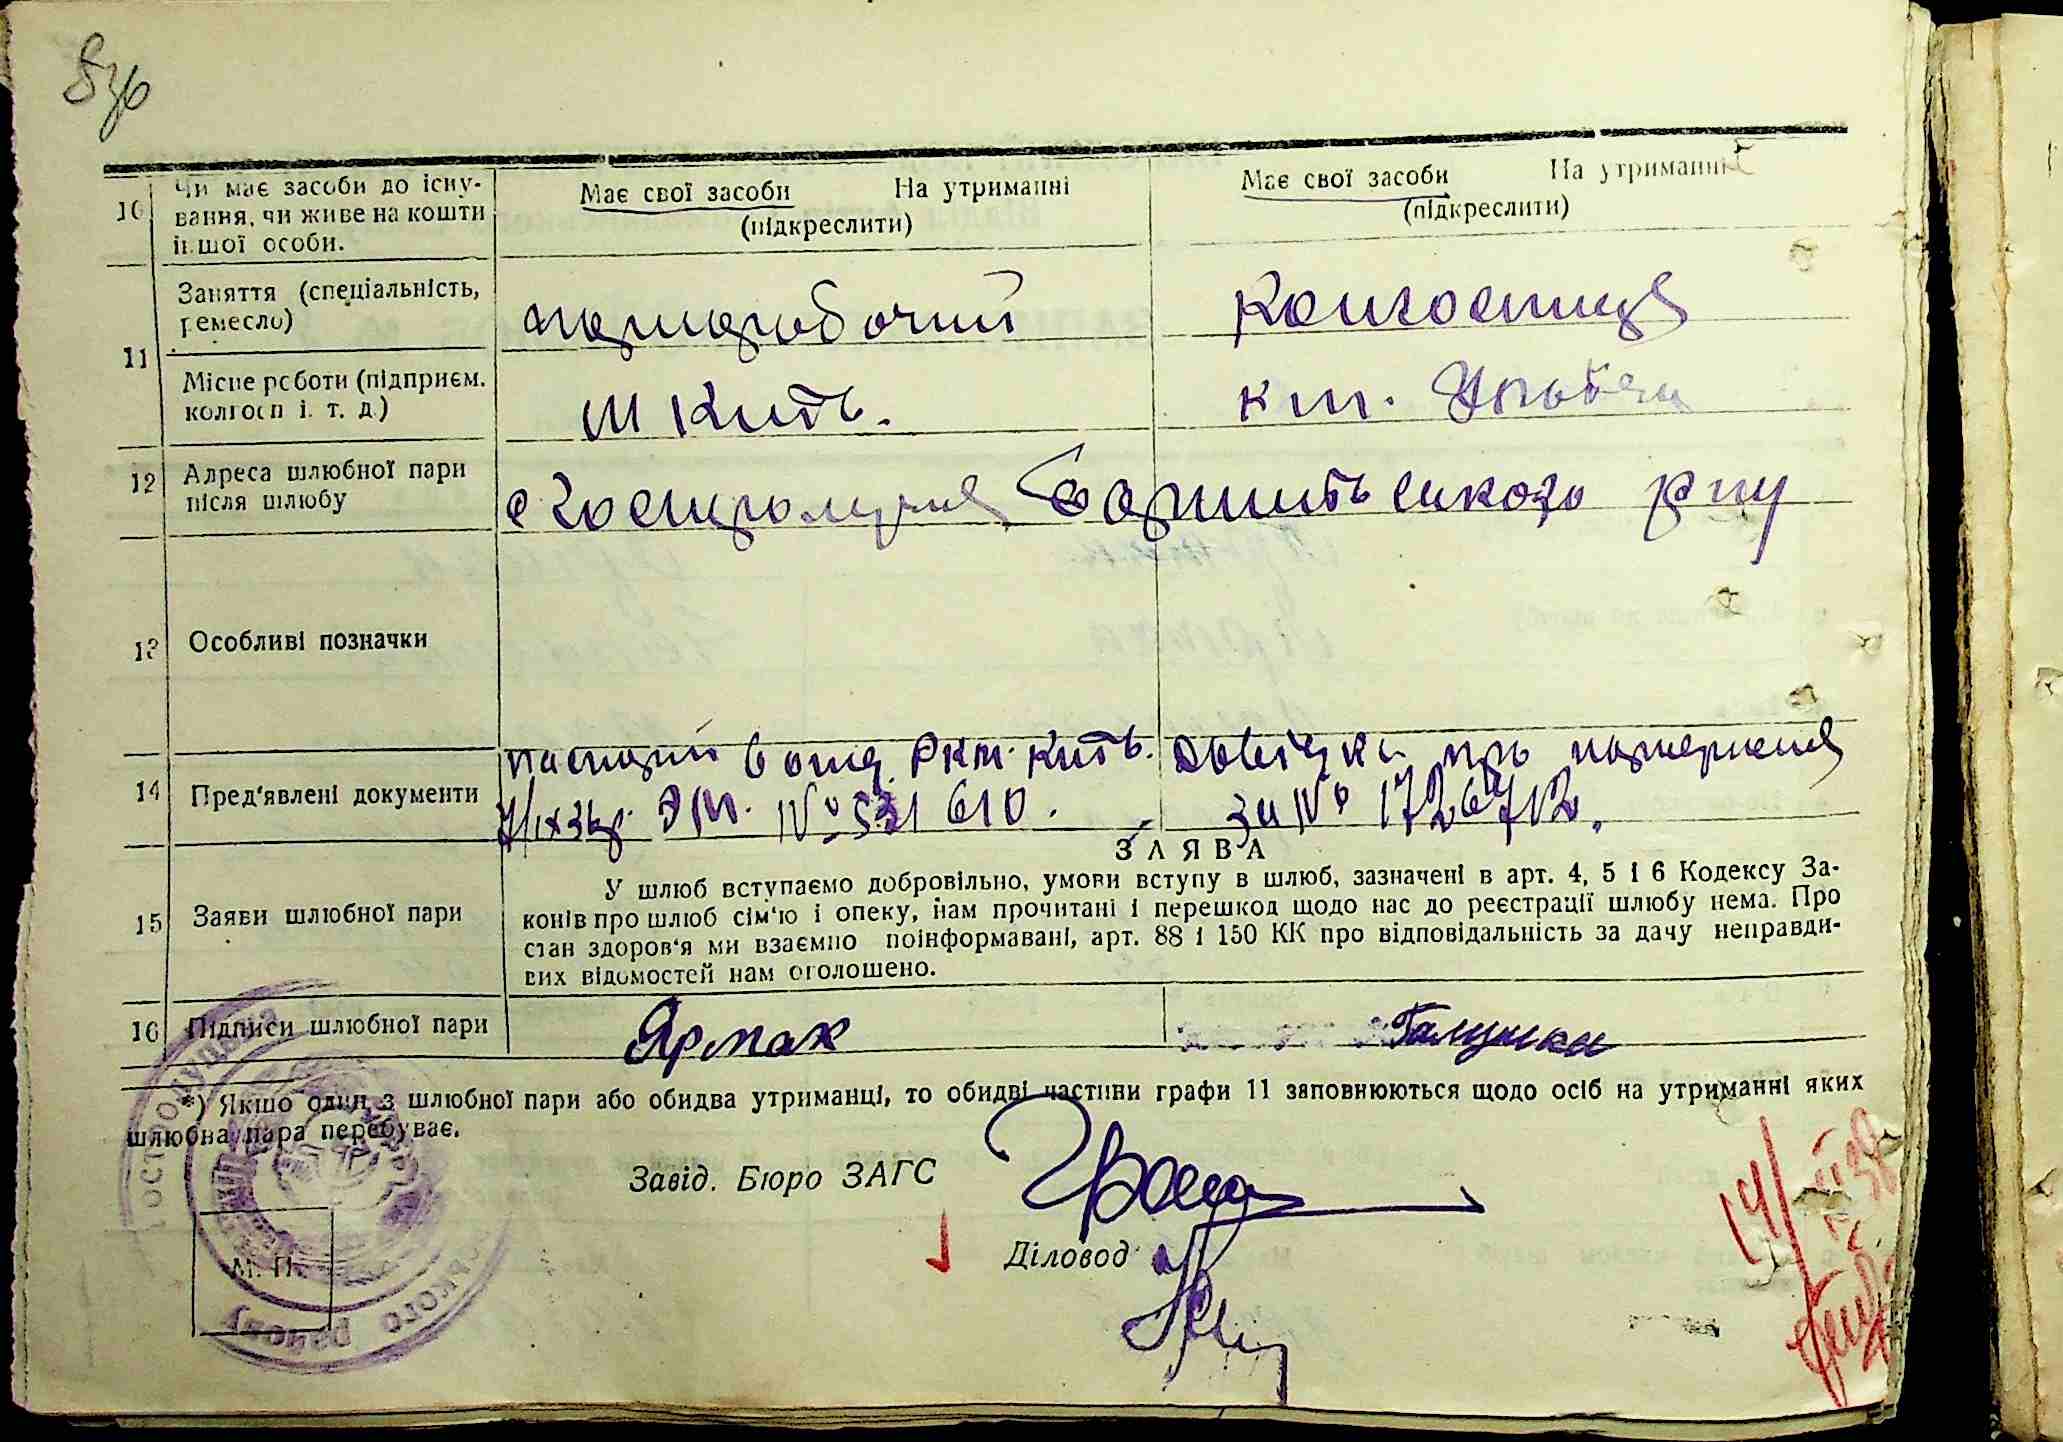 10 Чи має засоби до існу-
вання, чи живе на кошти
іншої особи.
Має свої засоби На утриманні
(підкреслити)
Має свої засоби На утриманні
(підкреслити)
11 Заняття (спеціальність,
ремесло)
чорноробочий
Колгоспниця
Місце роботи (підприєм.
колгосп і. т. д.)
м Київ.
12 Адреса шлюбної пари
після шлюбу
с Гостролуччя Баришівського р-ну
13 Особливі позначки
14 Пред'явлені документи
№ 531 610.
Довідка про
за № 1726712.
ЗАЯВА
15 Заяви шлюбної пари
У шлюб вступаємо добровільно, умови вступу в шлюб, зазначені в арт. 4, 5 і 6 Кодексу За-
конів про шлюб сім'ю і опеку, нам прочитані і перешкод щодо нас до реєстрації шлюбу нема. Про
стан здоров'я ми взаємно поінформавані, арт. 88 і 150 КК про відповідальність за дачу неправди-
вих відомостей нам оголошено.
16 Підписи шлюбної пари
Ярмак
Галушка
*) Якшо один з шлюбної пари або обидва утриманці, то обидві частини графи 11 заповнюються щодо осіб на утриманні яких
шлюбна пара перебуває.
Завід. Бюро ЗАГС
Діловод
М. П.